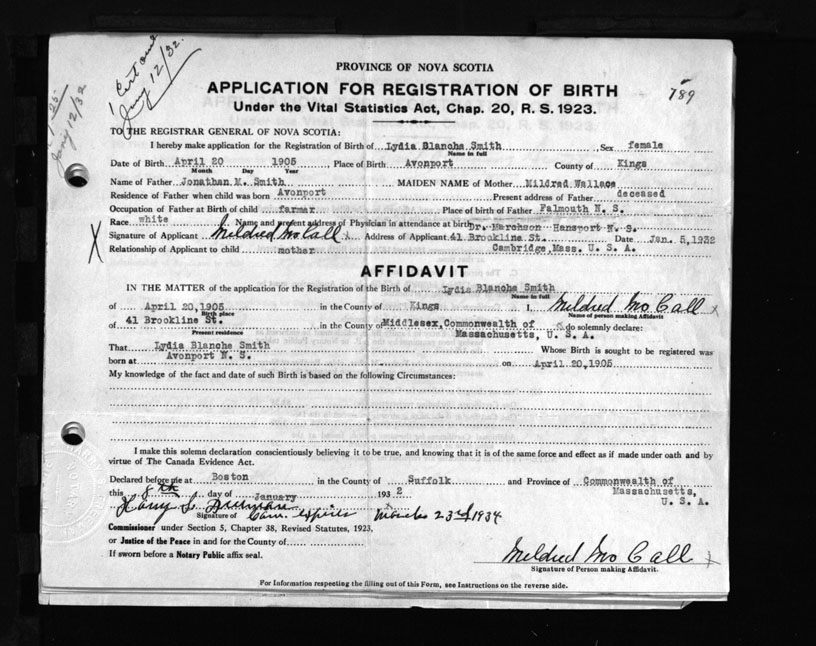 1 Cert one
Jany 12/32.
Jany 12/32
PROVINCE OF NOVA SCOTIA
APPLICATION FOR REGISTRATION OF BIRTH
789
Under the Vital Statistics Act, Chap. 20, R. S. 1923.
TO THE REGISTRAR GENERAL OF NOVA SCOTIA:
I hereby make application for the Registration of Birth of Lydia Blanche Smith, Sex female
Name in full
Date of Birth April 20 1905, Place of Birth Avonport County of Kings
Month Day Year
Name of Father Jonathan M. Smith MAIDEN NAME of Mother Mildred Wallace
Residence of Father when child was born Avonport Present address of Father deceased
Occupation of Father at Birth of child farmer Place of birth of Father Falmouth N. S.
Race white Name and present address of Physician in attendance at birth Dr. Marchson Hansport N. S.
X Signature of Applicant Mildred Mc Call x Address of Applicant 41 Brookline St. Date Jan. 5, 1932
Relationship of Applicant to child mother Cambridge, Mass. U. S. A.
AFFIDAVIT
IN THE MATTER of the application for the Registration of the Birth of Lydia Blanche Smith
Name in full
of April 20, 1905 in the County of Kings I, Mildred Mc Call x
Birth place Name of person making Affidavit
of 41 Brookline St. in the County of Middlesex, Commonwealth of do solemnly declare:
Present residence Massachusetts, U. S. A.
That Lydia Blanche Smith Whose Birth is sought to be registered was
born at Avonport N. S. on April 20, 1905
My knowledge of the fact and date of such Birth is based on the following Circumstances:
I make this solemn declaration conscientiously believing it to be true, and knowing that it is of the same force and effect as if made under oath and by
virtue of The Canada Evidence Act.
Declared before me at Boston in the County of Suffolk and Province of Commonwealth of
this 8th day of January 1932 Massachusetts,
U. S. A.
Harry S. Com. expires March 23rd 1934
Signature of
Commissioner under Section 5, Chapter 38, Revised Statutes, 1923,
or Justice of the Peace in and for the County of
If sworn before a Notary Public affix seal.
Mildred Mc Call x
Signature of Person making Affidavit.
For Information respecting the filling out of this Form, see Instructions on the reverse side.